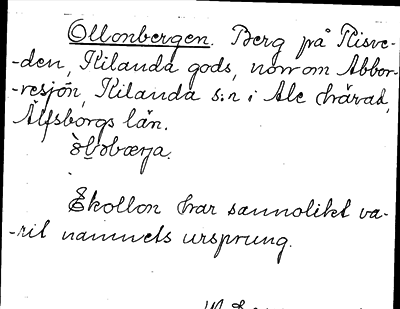 Ollonbergen. Berg på Risve-
-den, Kilanda gods, norr om Abbor-
-resjön, Kilanda s:n i Ale härad,
Älfsborgs län.
Ekollon har sannolikt va-
-rit namnets ursprung.